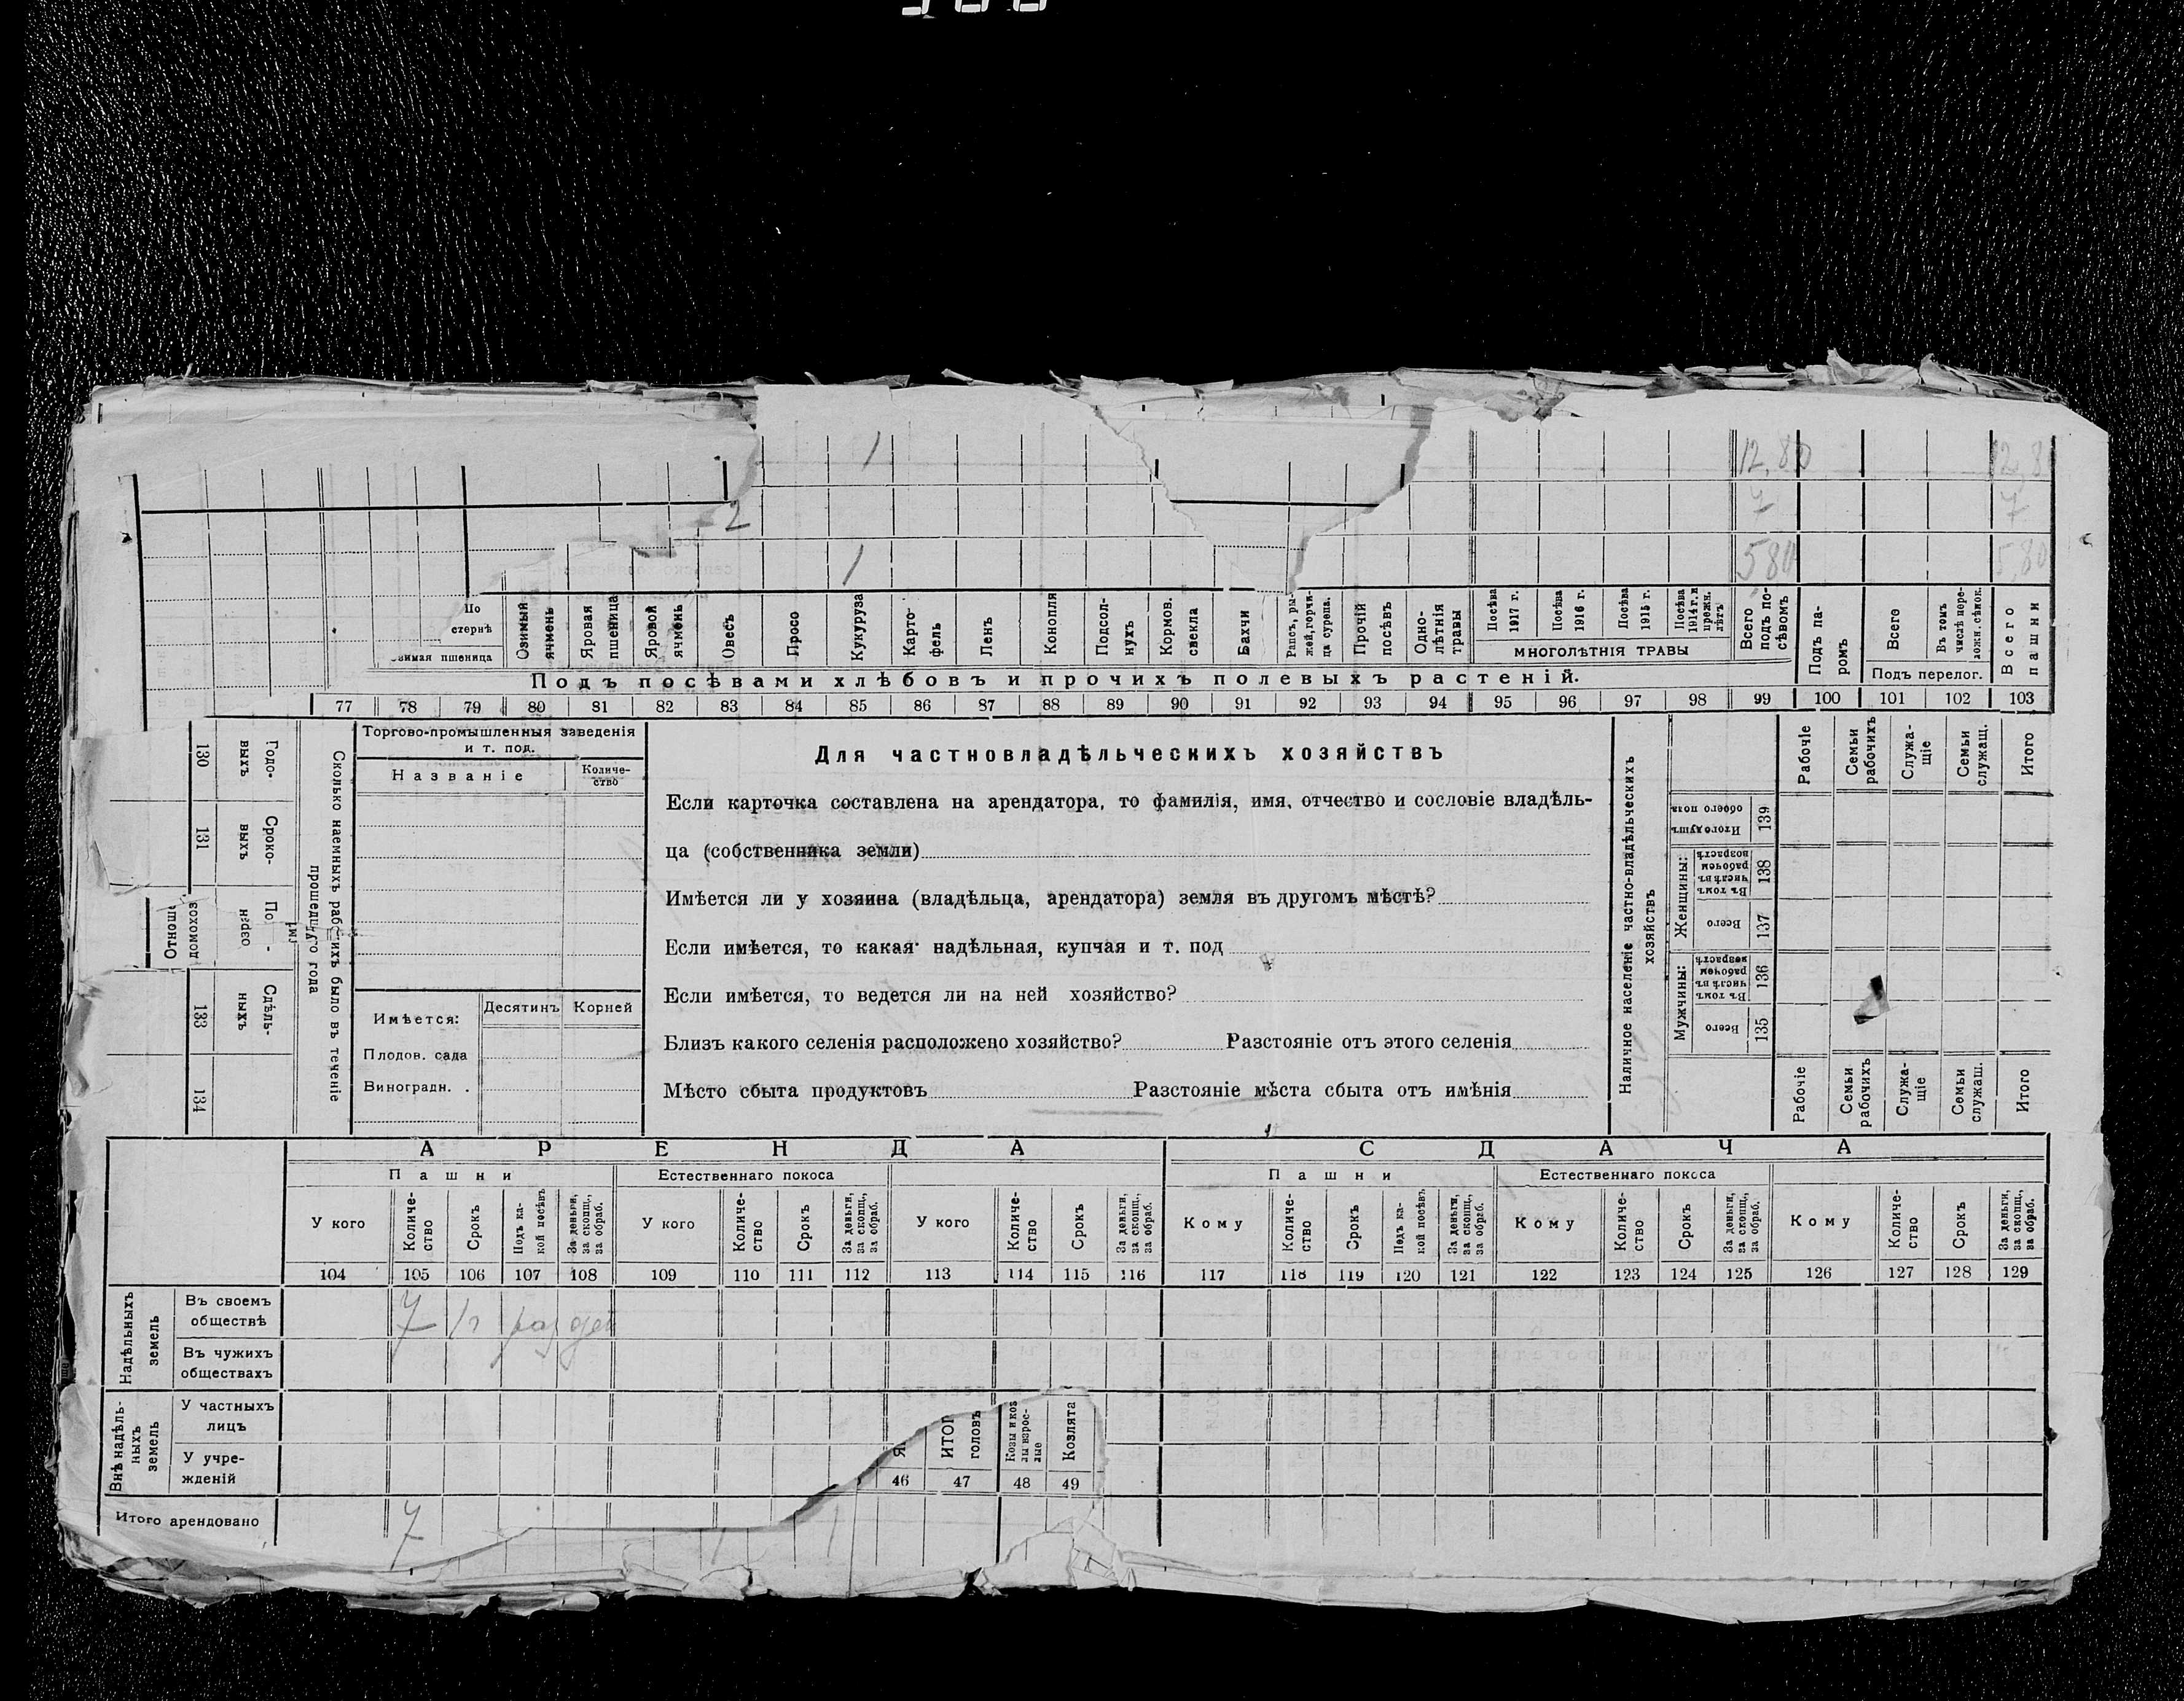 1 12,80
7 7
2
1 580 5,80
По стернѣ
Озимый ячмень Яровая пшеница Яровой ячмень Овесъ Просо Кукуруза Карто- фель Ленъ Конопля Подсол- нухъ Кормов. свекла Бахчи Рапсъ, ры- жей, горчи- ца сурепа. Прочій посѣвъ Одно- лѣтнія травы Посѣва 1917 г. Посѣва 1916 г. Посѣва 1915 г. Посѣва 1914 г. и прежн. лѣтъ Всего подъ по- сѣвомъ Подъ па- ромъ Всего Въ томъ числѣ пере- ложн. сѣнок. Всего пашни
озимая пшеница МНОГОЛѢТНІЯ ТРАВЫ Подъ перелог.
Подъ посѣвами хлѣбовъ и прочихъ полевыхъ растеній.
77 78 79 80 81 82 83 84 85 86 87 88 89 90 91 92 93 94 95 96 97 98 99 100 101 102 103
130 Годо- выхъ
131 Сроко- выхъ
Отноше домохоз
133 Сдѣль- ныхъ
134
Сколько наемныхъ рабочихъ было въ теченіе
прошедшаго года
Торгово-промышленныя заведенія
и т. под.
Названіе Количе- ство
Имѣется: Десятинъ Корней
Плодов. сада
Виноградн. .
Для частновладѣльческихъ хозяйствъ
Если карточка составлена на арендатора, то фамилія, имя, отчество и сословіе владѣль-
ца (собственника земли)
Имѣется ли у хозяина (владѣльца, арендатора) земля въ другомъ мѣстѣ?
Если имѣется, то какая: надѣльная, купчая и т. под
Если имѣется, то ведется ли на ней хозяйство?
Близъ какого селенія расположено хозяйство? Разстояніе отъ этого селенія
Мѣсто сбыта продуктовъ Разстояніе мѣста сбыта отъ имѣнія
Наличное населеніе частно-владѣльческихъ
хозяйствъ
Рабочіе Семьи рабочихъ Служа- щіе Семьи служащ. Итого
Итого душъ обоего пола 139
Женщины: Въ томъ числѣ въ рабочем возрастѣ 138
Всего 137
Мужчины: Въ томъ числѣ въ рабочем возрастѣ 136
Всего 135
Рабочіе Семьи рабочихъ Служа- щіе Семьи служащ. Итого
АРЕНДА СДАЧА
Пашни Естественнаго покоса Пашни Естественнаго покоса
У кого Количе- ство Срокъ Подъ ка- кой посѣвъ За деньги, за скопщ., за обраб. У кого Количе- ство Срокъ За деньги, за скопщ., за обраб. У кого Количе- ство Срокъ За деньги, за скопщ., за обраб. Кому Количе- ство Срокъ Подъ ка- кой посѣвъ За деньги, за скопщ., за обраб. Кому Количе- ство Срокъ За деньги, за скопщ., за обраб. Кому Количе- ство Срокъ За деньги, за скопщ., за обраб.
104 105 106 107 108 109 110 111 112 113 114 115 116 117 118 119 120 121 122 123 124 125 126 127 128 129
Надѣльныхъ земель
Въ своемъ обществѣ 7 1 г раз ден
Въ чужихъ обществахъ
Внѣ надѣль- ныхъ земель
У частныхъ лицъ
У учре- жденій
ИТОГ головъ Козы и коз лы взрос- лые Козлята
46 47 48 49
Итого арендовано 7
1 1